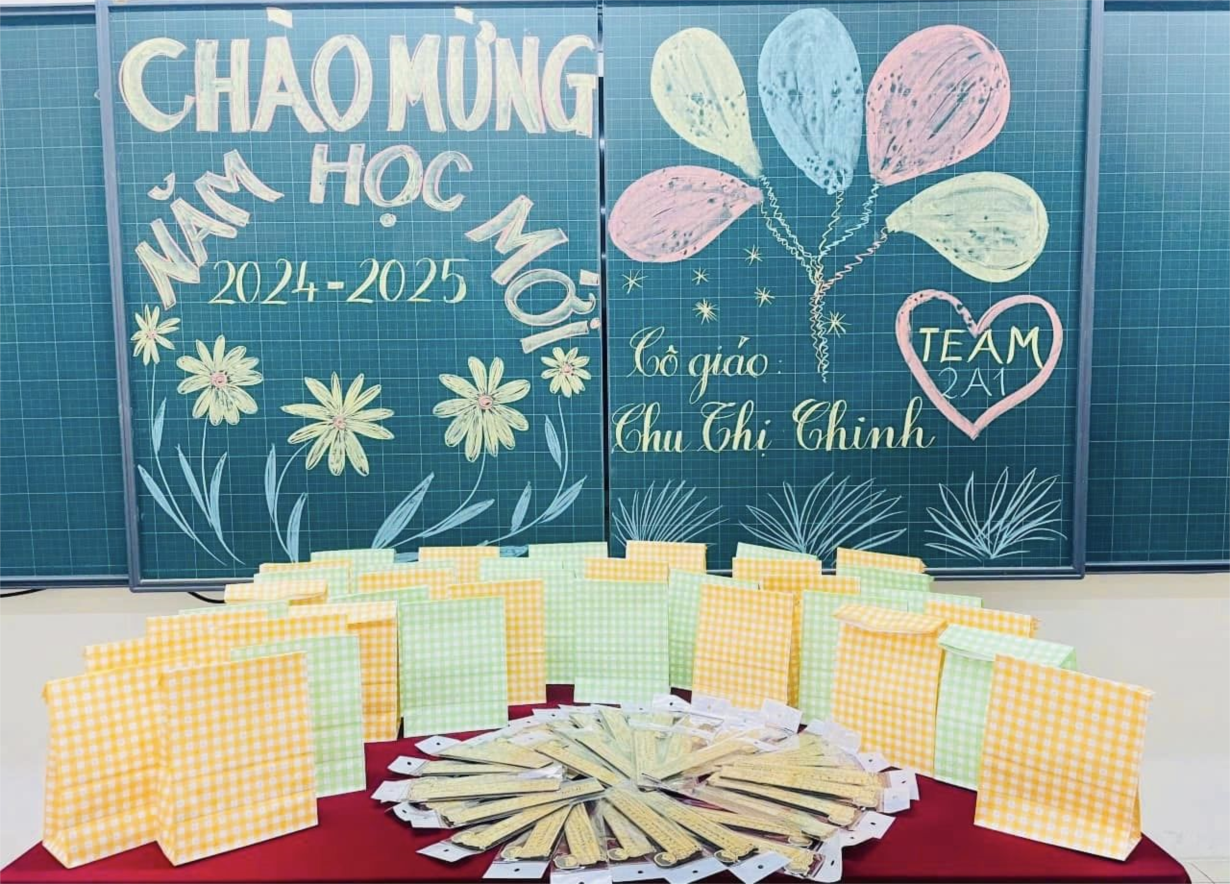 CHÀO MỪNG
NĂM HỌC MỚI
2024-2025
Cô giáo:
Chu Thị Chinh
TEAM
2A1